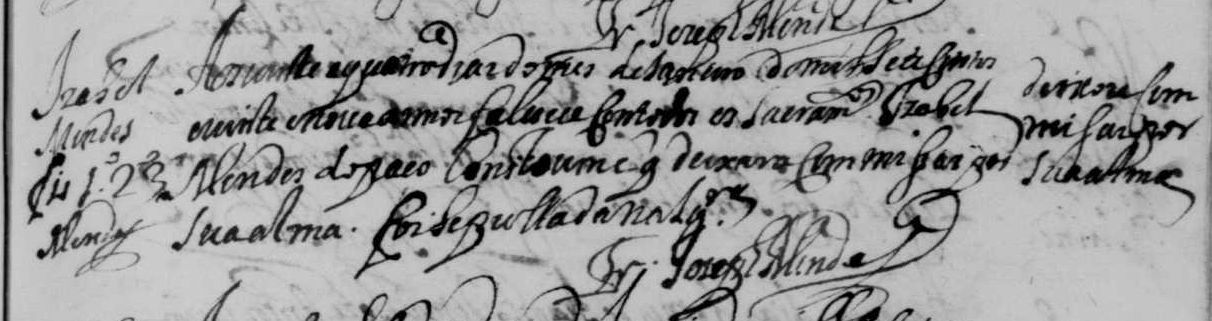 Jr. Joseph Mendes
Izabel
Mendes
Mendes
Aos vinte e quatro dias do mes de Janeiro de mil Sete Centos
e vinte e nove annos faleceu Com todos os Sacram.tos Izabel
Mendes do paço Constoume q deixara Cem missas por
Sua alma. Foi Sepultada na Igr.ª
deixou Cem
missas por
Sua alma
Joseph Mendes